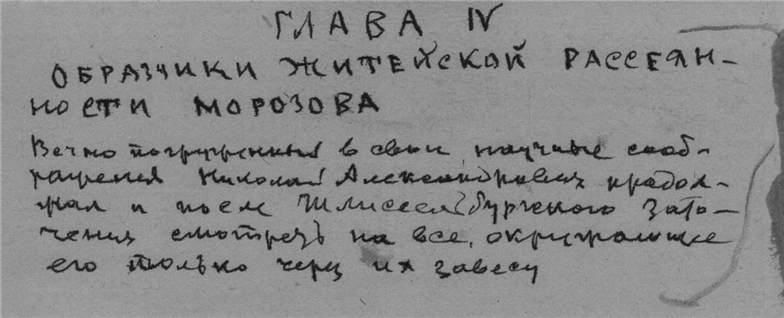 ГЛАВА IV
ОБРАЗЧИКИ ЖИТЕЙСКОЙ РАССЕЯН-
НОСТИ МОРОЗОВА
Вечно погруженный в свои научные сооб-
ражения Николай Александрович продол-
жал и после Шлиссельбургского зато-
чения смотреть на все, окружающее
его только через их завесу